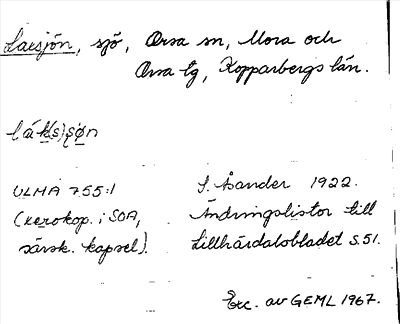 Laxsjön, sjö, Orsa sn, Mora och
Orsa tg, Kopparbergs län.
lák(s)ʃøn
ULMA 755:1
(xerokop. i SOA,
särsk. kapsel).
S. Lander 1922.
Ändringslistor till
Lillhärdalsbladet S.51.
Exc. av GEML 1967.